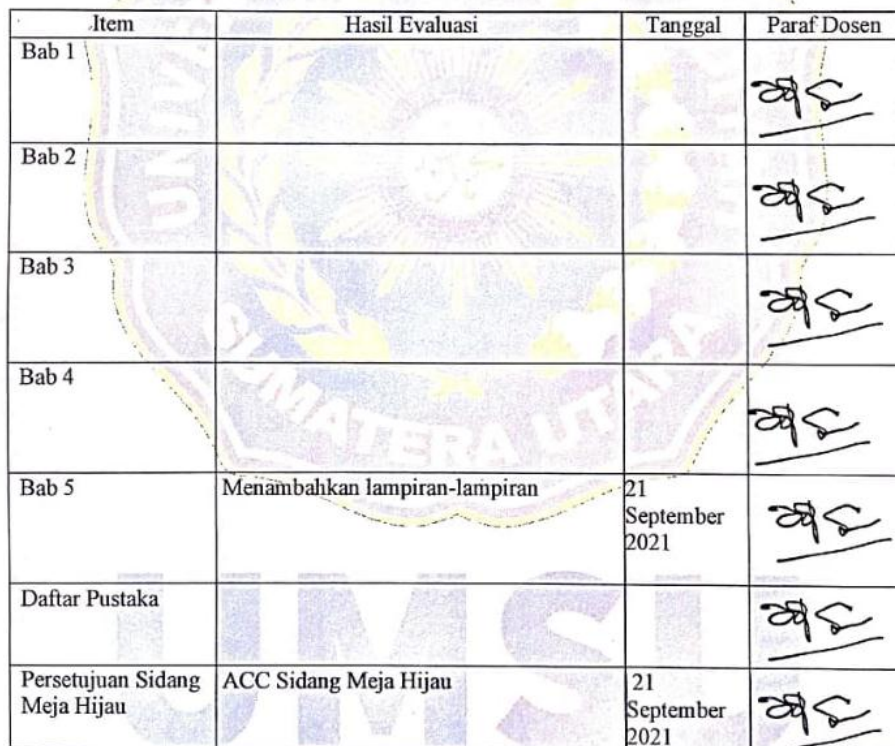 Item Hasil Evaluasi Tanggal Paraf Dosen
Bab 1
Bab 2
Bab 3
Bab 4
Bab 5 Menambahkan lampiran-lampiran 21
September
2021
Daftar Pustaka
Persetujuan Sidang ACC Sidang Meja Hijau 21
Meja Hijau September
2021
SUMATERA UTARA
UMSU